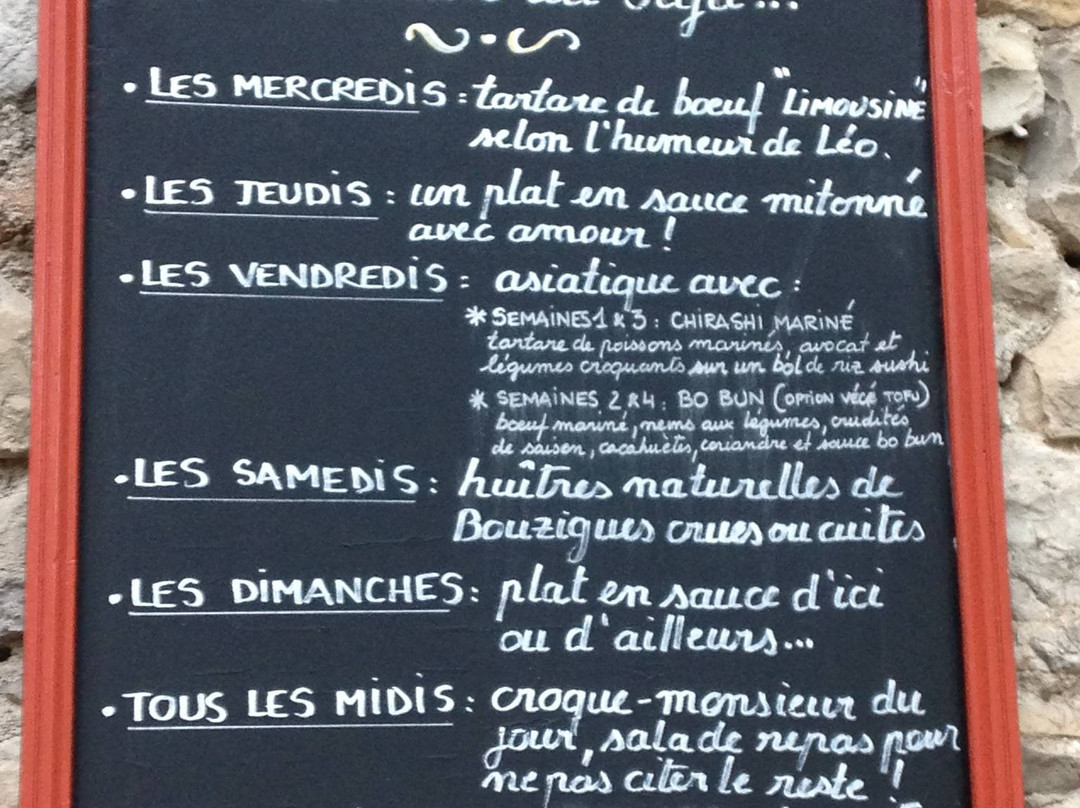 • LES MERCREDIS : tartare de boeuf "LIMOUSINE"
selon l'humeur de Léo.
• LES JEUDIS : un plat en sauce mitonné
avec amour !
• LES VENDREDIS : asiatique avec :
* SEMAINES 1 & 3 : CHIRASHI MARINÉ
tartare de poissons marinés, avocat et
légumes croquants sur un bol de riz sushi
* SEMAINES 2 & 4 : BO BUN (OPTION VÉGÉ TOFU)
boeuf mariné, nems aux légumes, crudités
de saison, cacahuètes, coriandre et sauce bo bun
• LES SAMEDIS : huîtres naturelles de
Bouzigues crues ou cuites
• LES DIMANCHES : plat en sauce d'ici
ou d'ailleurs...
• TOUS LES MIDIS : croque-monsieur du
jour, salade repas pour
ne pas citer le reste !